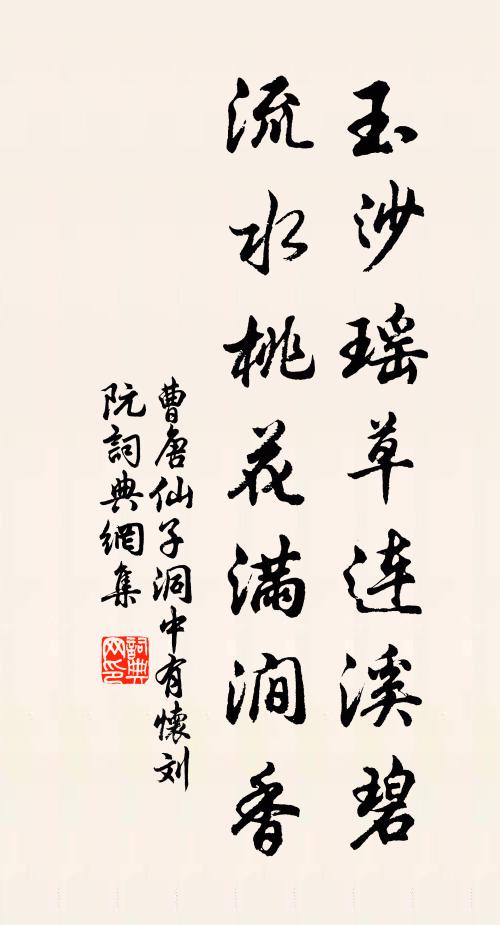 玉沙瑶草连溪碧
流水桃花满涧香
曹唐仙子洞中有懷刘
阮詞典網集
詞典网印